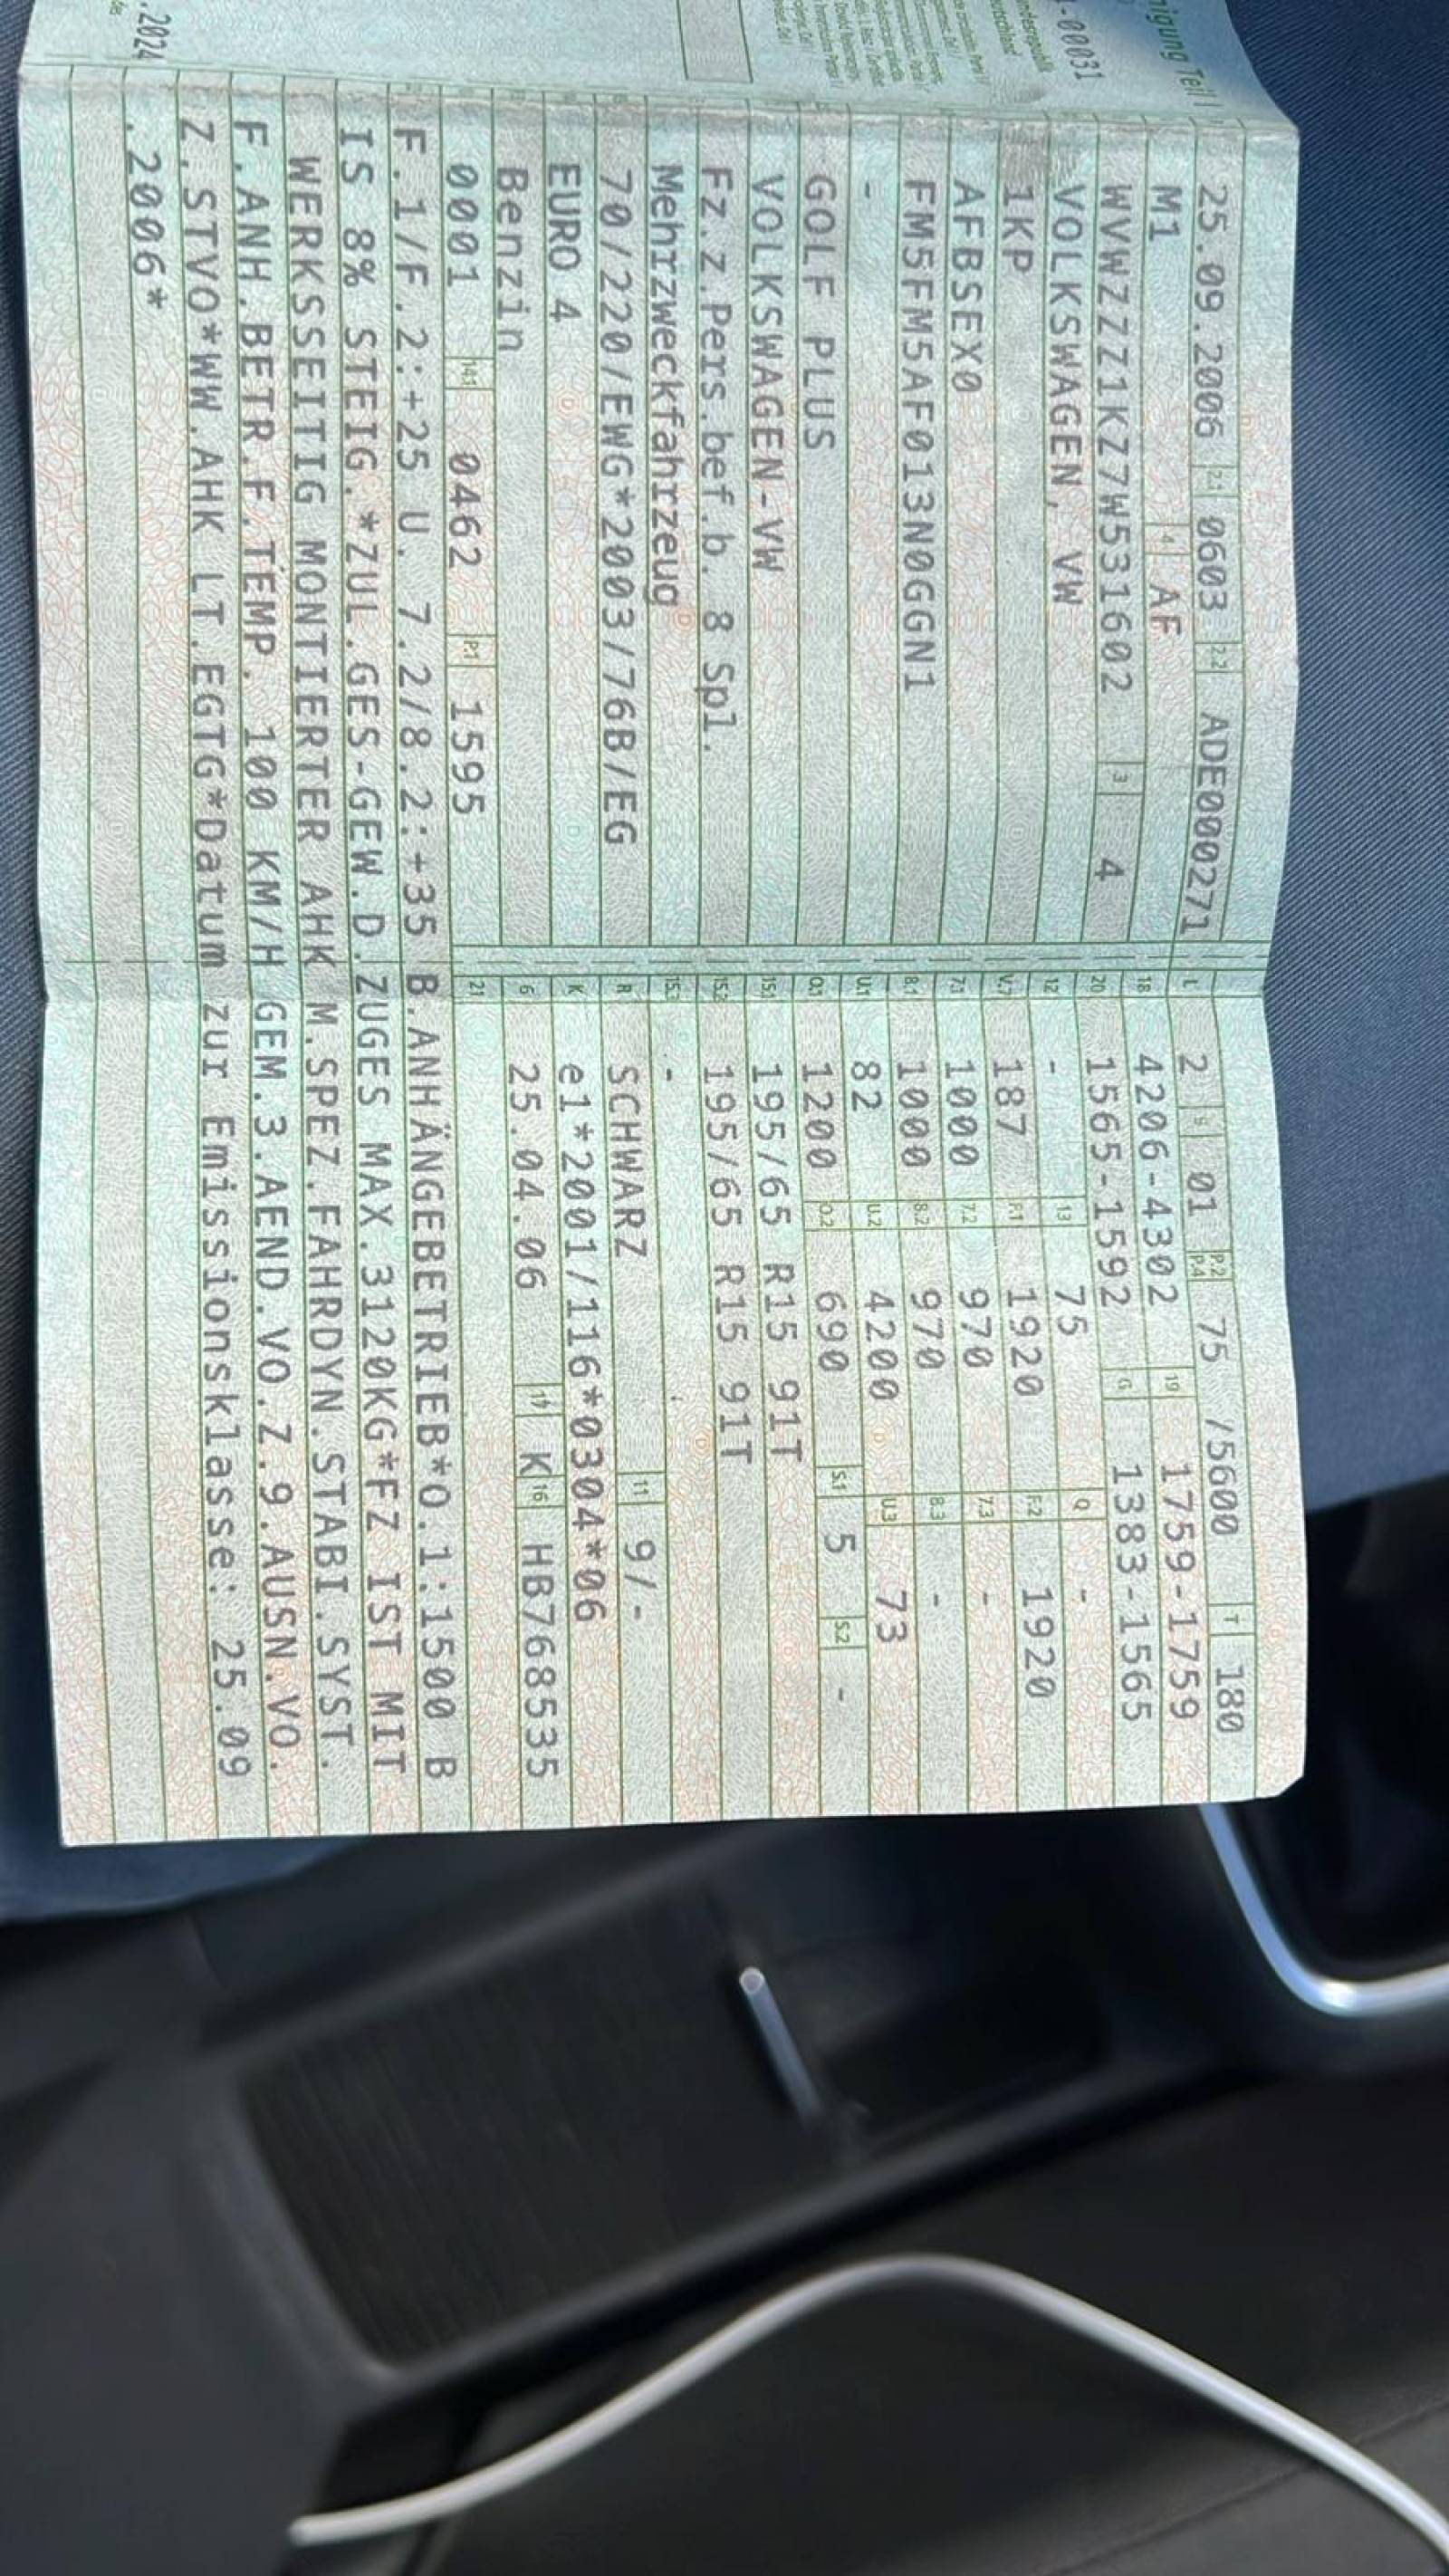 25.09.2006 2.1 0603 2.2 ADE000271
M1 4 AF
WVWZZZ1KZ7W531602 3 4
VOLKSWAGEN, VW
1KP
AFBSEX0
FM5FM5AF013N0GGN1
-
GOLF PLUS
VOLKSWAGEN-VW
Fz.z.Pers.bef.b. 8 Spl.
Mehrzweckfahrzeug
70/220/EWG*2003/76B/EG
EURO 4
Benzin
0001 14.1 0462 P.1 1595
L 2 9 01 P.2 P.4 75 /5600 T 180
18 4206-4302 19 1759-1759
20 1565-1592 G 1383-1565
12 - 13 75 Q -
V.7 187 F.1 1920 F.2 1920
7.1 1000 7.2 970 7.3 -
8.1 1000 8.2 970 8.3 -
U.1 82 U.2 4200 U.3 73
O.1 1200 O.2 690 S.1 5 S.2 -
15.1 195/65 R15 91T
15.2 195/65 R15 91T
15.3 -
R SCHWARZ 11 9/-
K e1*2001/116*0304*06
6 25.04.06 17 K 16 HB768535
21
F.1/F.2:+25 U. 7.2/8.2:+35 B.ANHÄNGEBETRIEB*O.1:1500 B
IS 8% STEIG.*ZUL.GES-GEW.D.ZUGES MAX.3120KG*FZ IST MIT
WERKSSEITIG MONTIERTER AHK M.SPEZ.FAHRDYN.STABI.SYST.
F.ANH.BETR.F.TEMP. 100 KM/H GEM.3.AEND.VO.Z.9.AUSN.VO.
Z.STVO*WW.AHK LT.EGTG*Datum zur Emissionsklasse: 25.09
.2006*
nigung Teil I
-00031
.2024